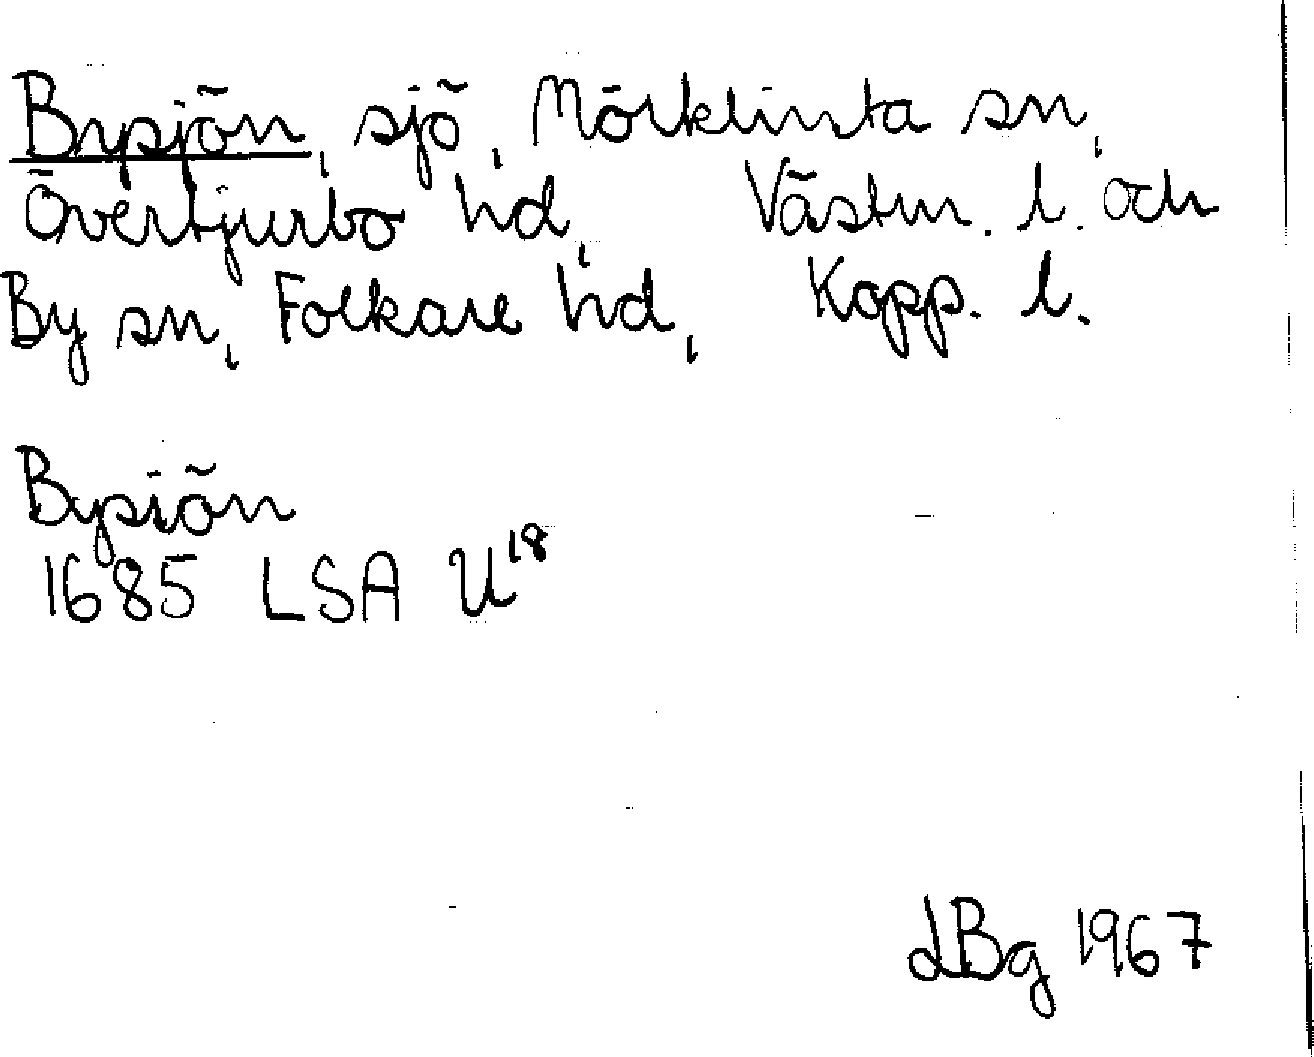 Bysjön, sjö, Mörklinta sn,
Övertjurbo hd, Västm. l. och
By sn, Folkare hd, Kopp. l.
Bysiön
1685 LSA U18
LBg 1967